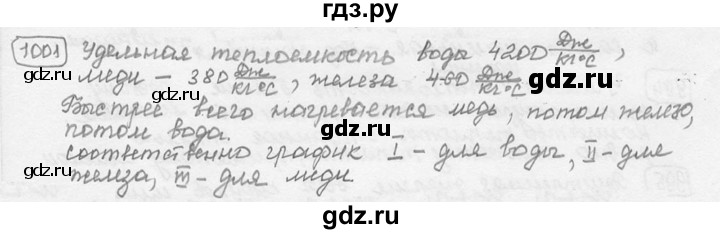 гдз.ру
1001 Удельная теплоемкость вода 4200 Дж/кг°С,
меди – 380 Дж/кг°С, железа 460 Дж/кг°С
Быстрее всего нагревается медь, потом железо,
потом вода.
соответственно график I – для воды, II – для
железа, III – для меди
gdz.ru
gdz.ru
gdz.ru
gdz.ru
gdz.ru
gdz.ru
gdz.ru
gdz.ru
gdz.ru